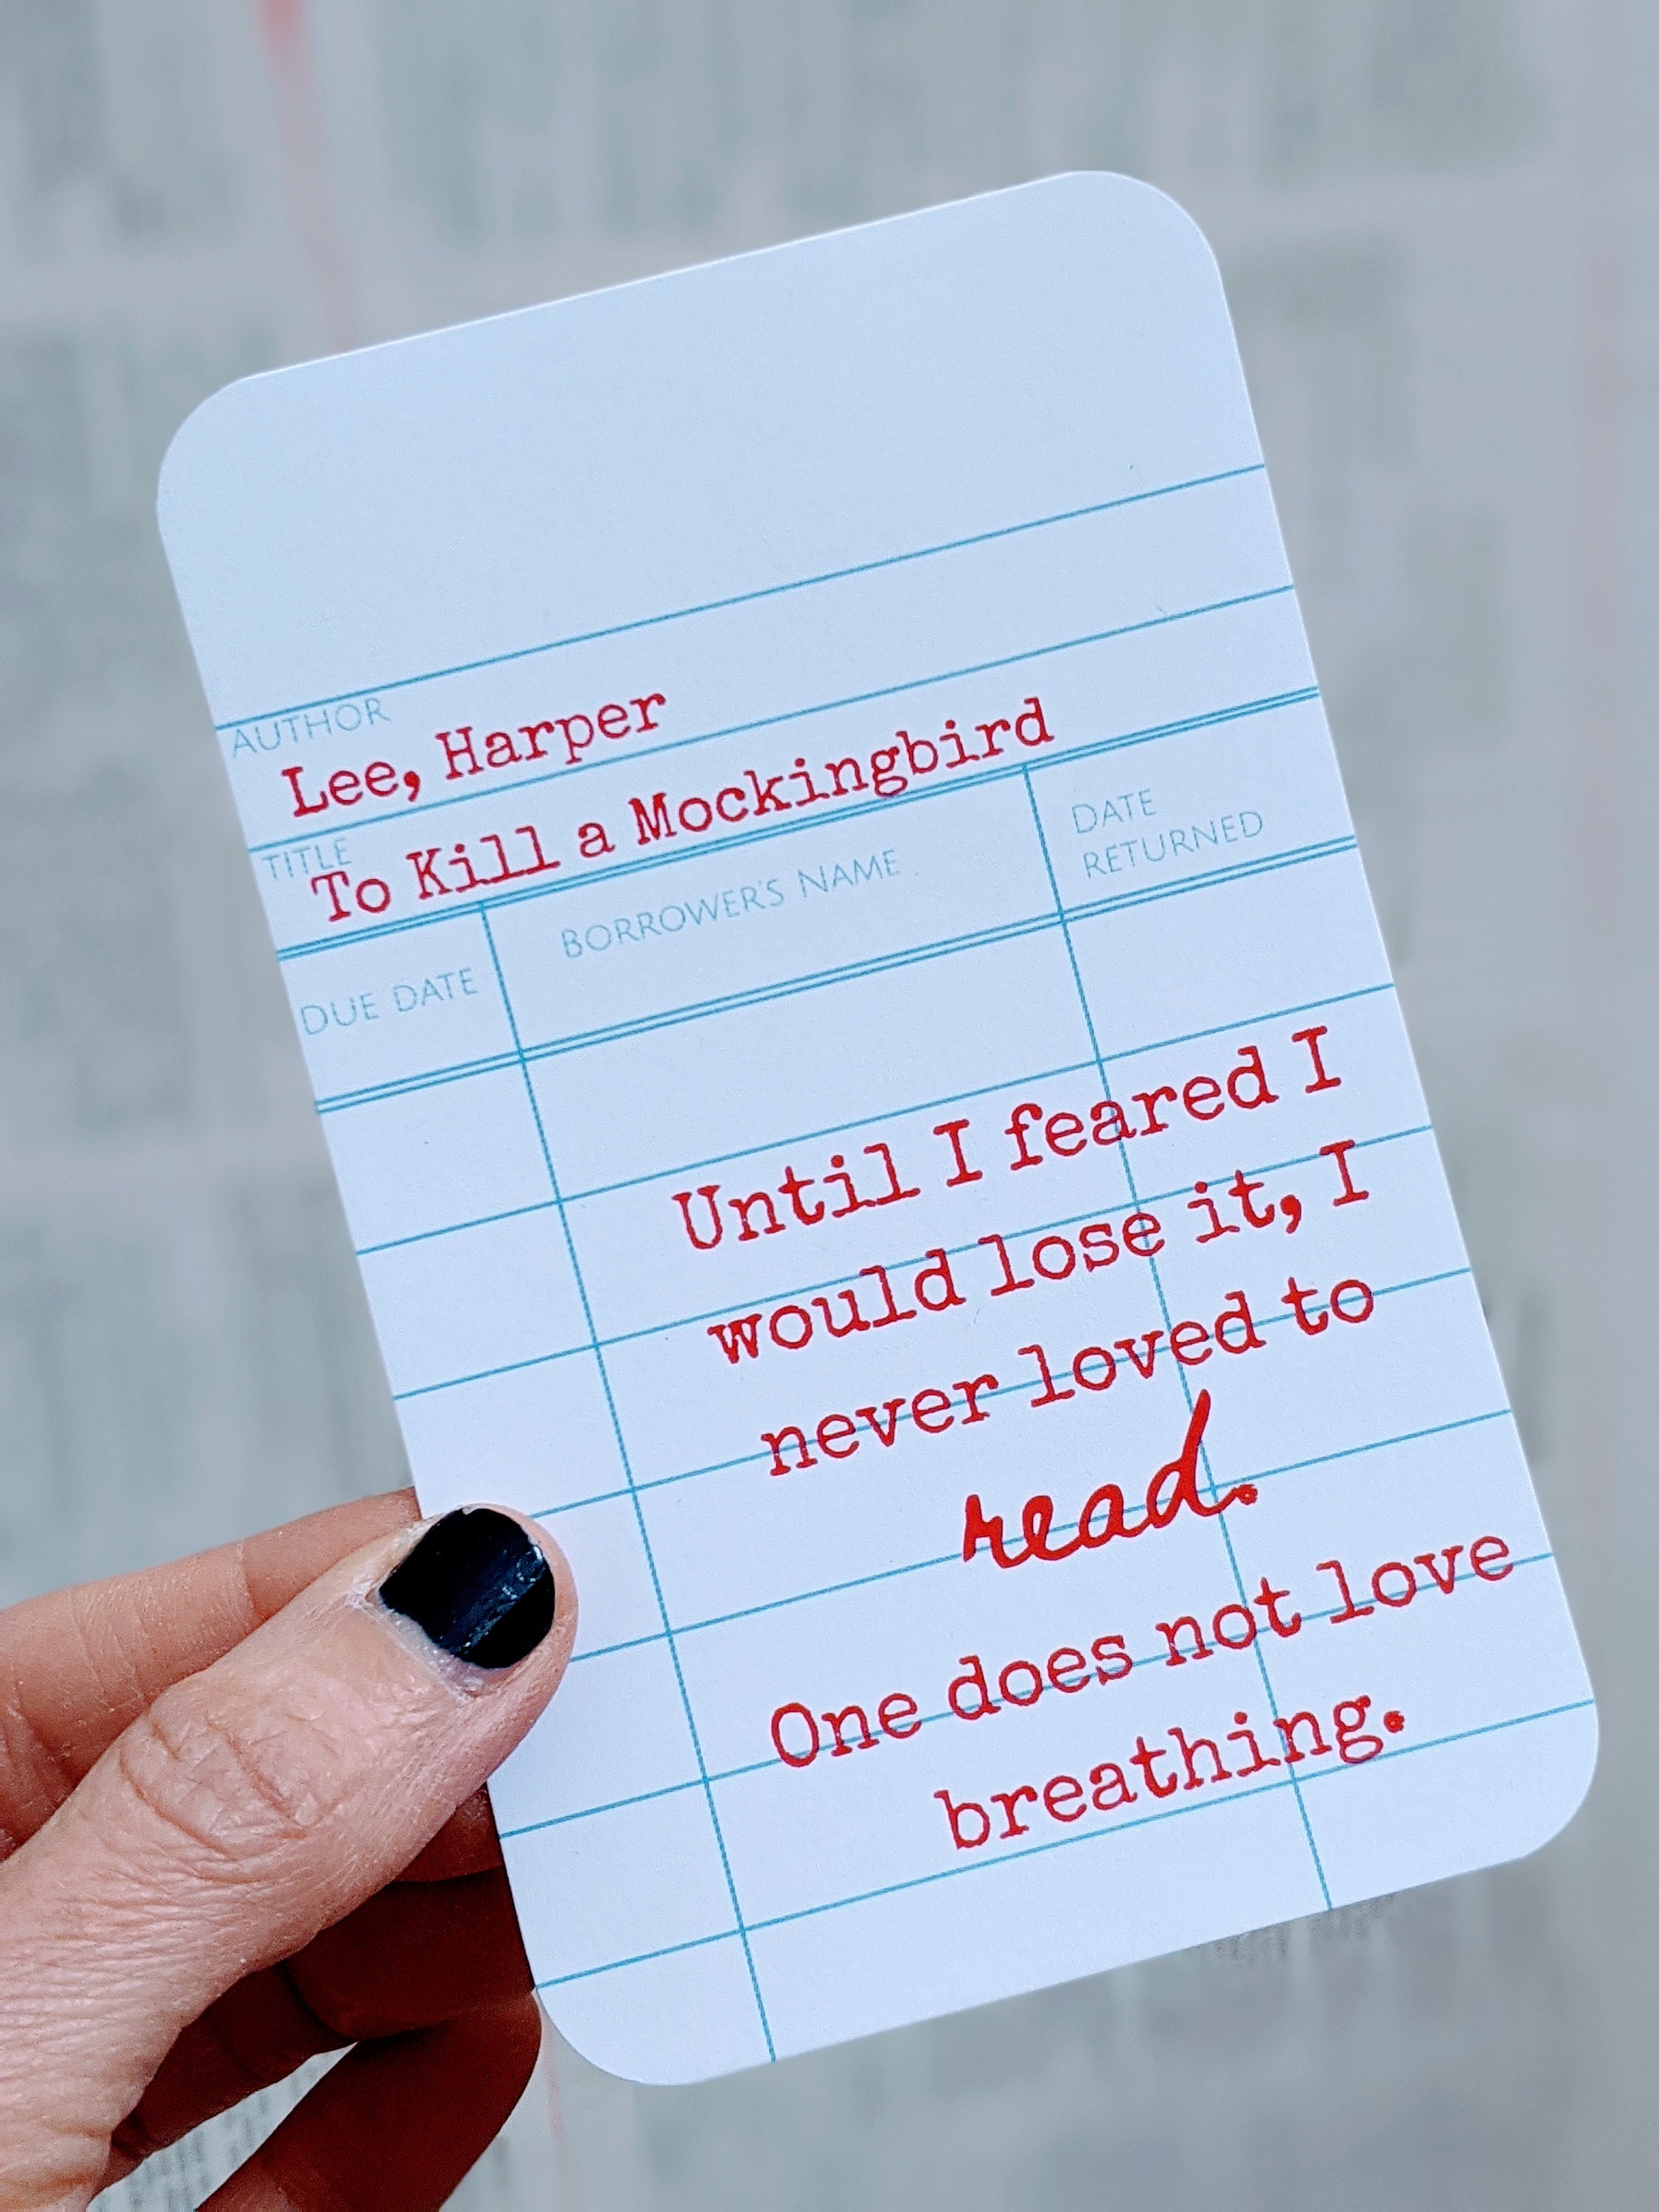 AUTHOR
Lee, Harper
TITLE
To Kill a Mockingbird
DUE DATE
BORROWER'S NAME
DATE
RETURNED
Until I feared I
would lose it, I
never loved to
read.
One does not love
breathing.